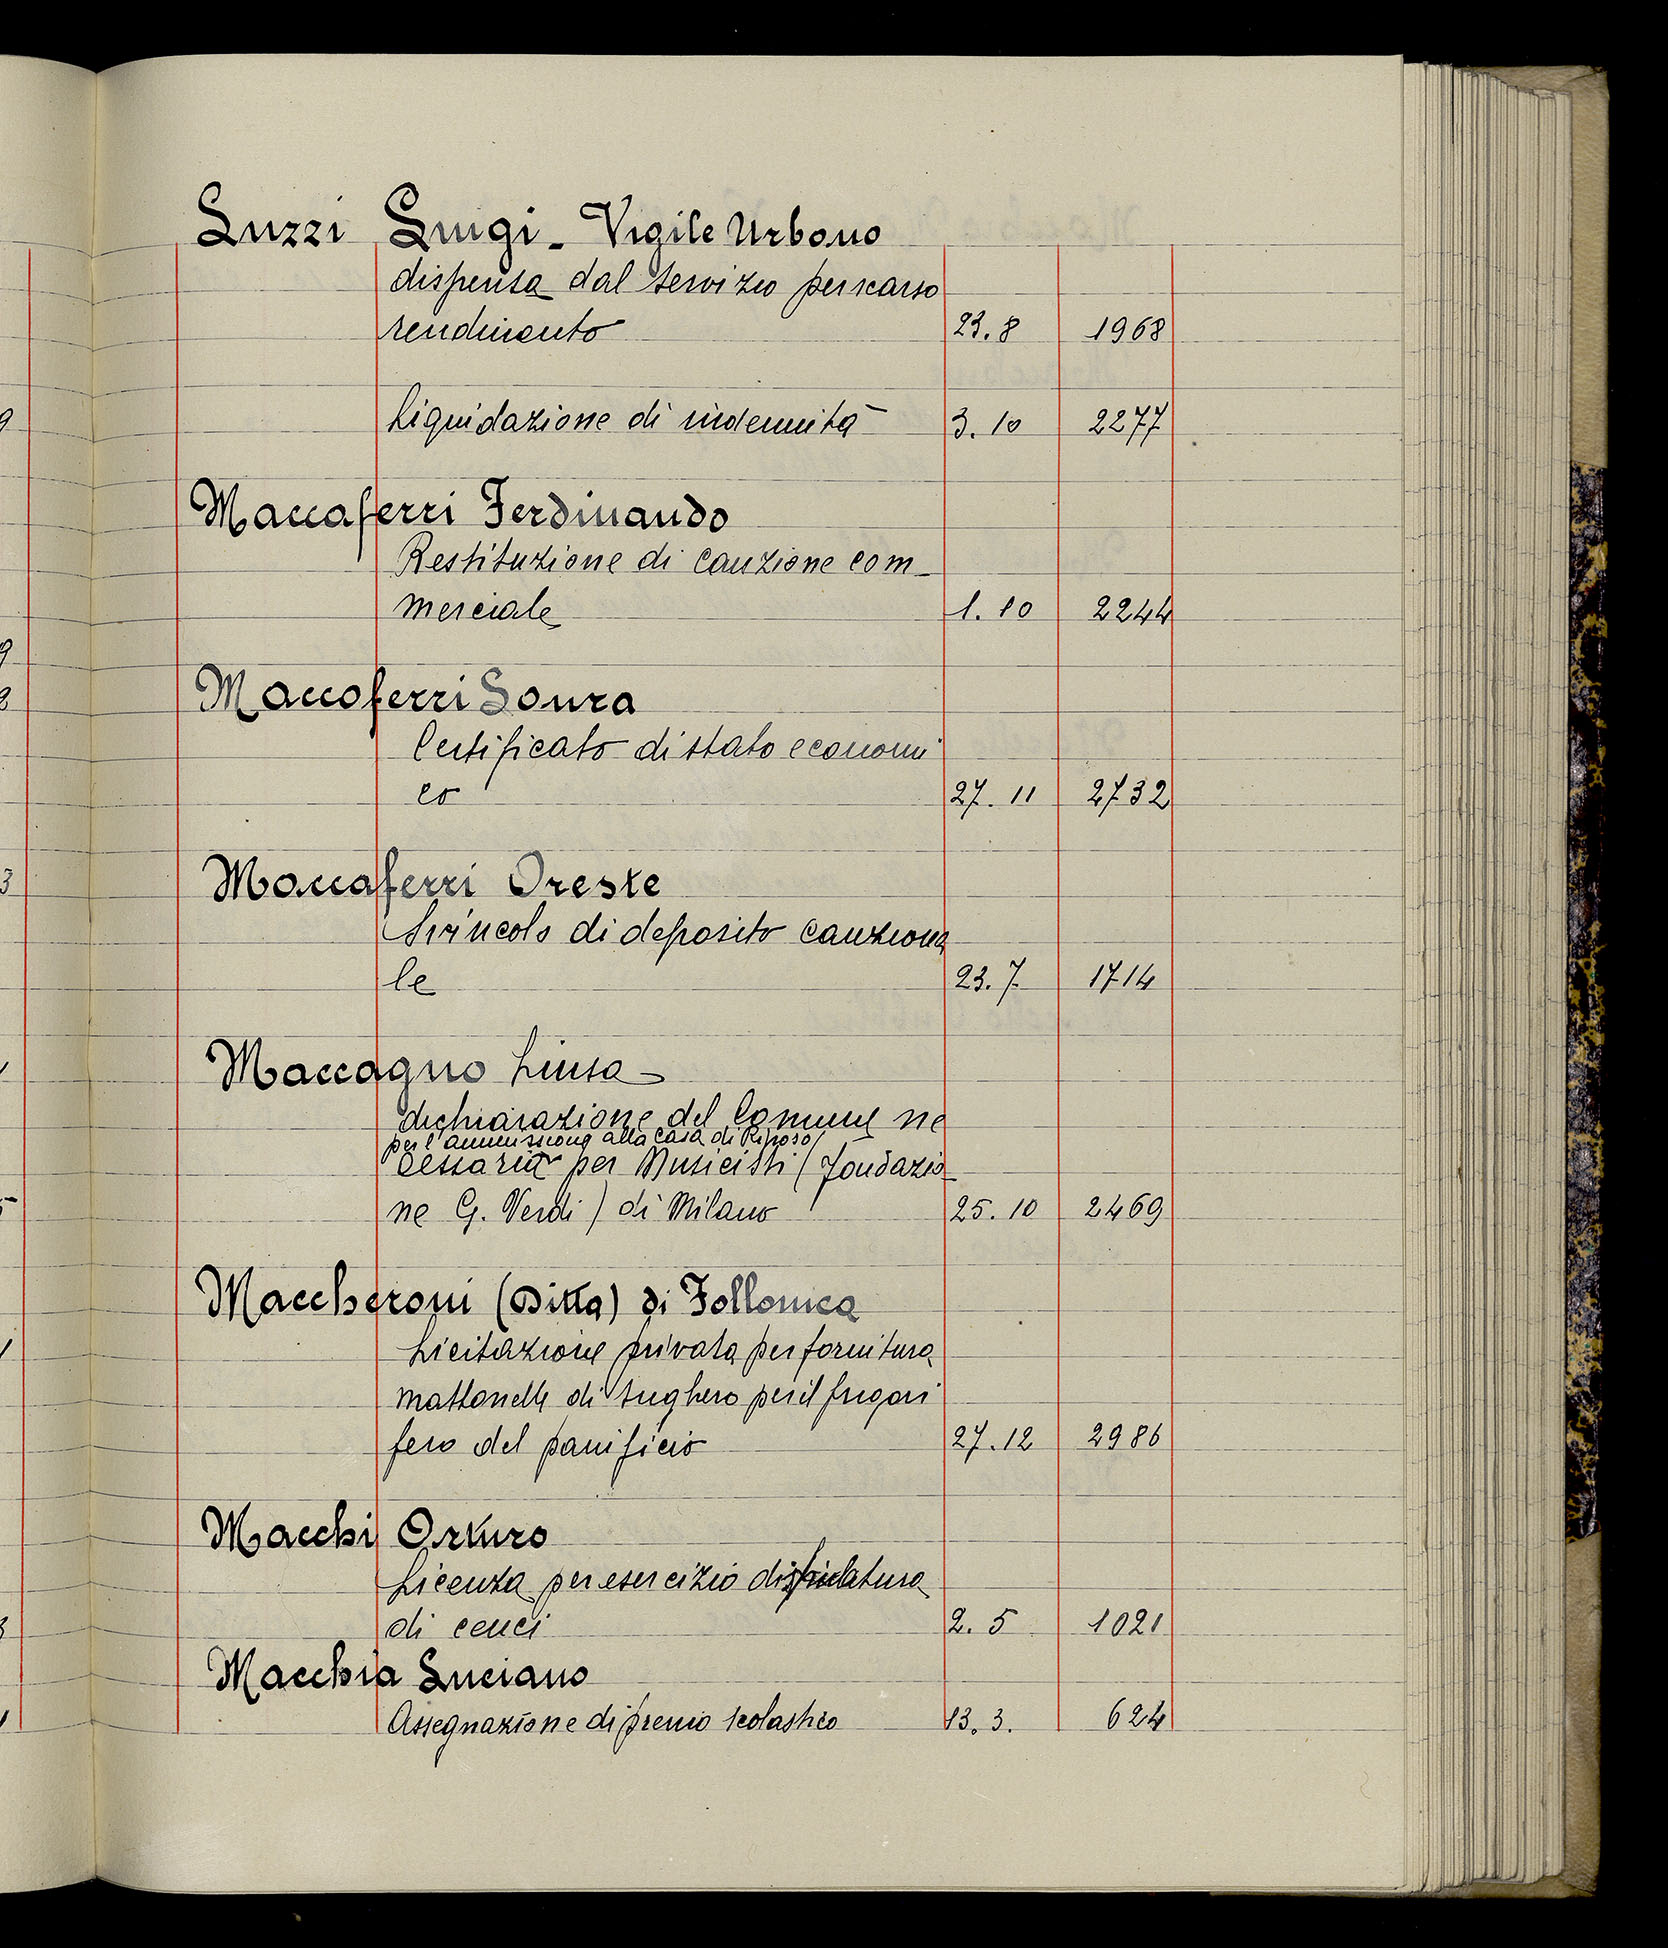 Luzzi Luigi - Vigile Urbano
dispensa dal servizio per scarso
rendimento 23.8 1968
Liquidazione di indennità 3.10 2277
Maccaferri Ferdinando
Restituzione di cauzione com-
merciale 1.10 2244
Maccaferri Laura
Certificato di stato economi
co 27.11 2732
Maccaferri Oreste
Svincolo di deposito cauziona
le 23.7 1714
Maccagno Luisa
dichiarazione del Comune ne
per l'ammissione alla Casa di Riposo
cessaria per Musicisti (fondazio-
ne G. Verdi) di Milano 25.10 2469
Maccheroni (Ditta) di Follonica
Licitazione privata per fornitura
mattonelle di sughero per il frigori
fero del panificio 27.12 2986
Macchi Arturo
Licenza per esercizio di
di cenci 2.5 1021
Macchia Luciano
Assegnazione di premio scolastico 13.3. 624